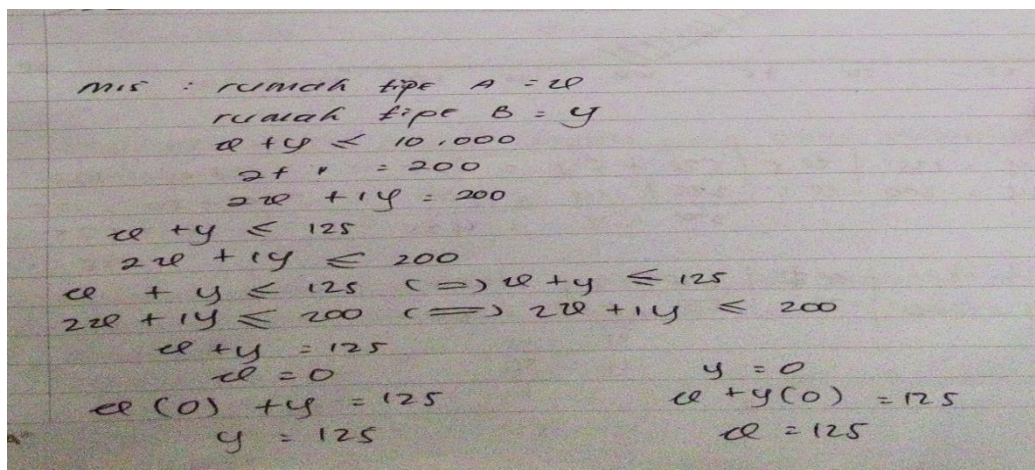 mis : rumah tipe A = x
rumah tipe B = y
x + y ≤ 10.000
2 + 1 = 200
2x + 1y = 200
x + y ≤ 125
2x + 1y ≤ 200
x + y ≤ 125 (=) x + y ≤ 125
2x + 1y ≤ 200 (=) 2x + 1y ≤ 200
x + y = 125
x = 0 y = 0
x (0) + y = 125 x + y (0) = 125
y = 125 x = 125